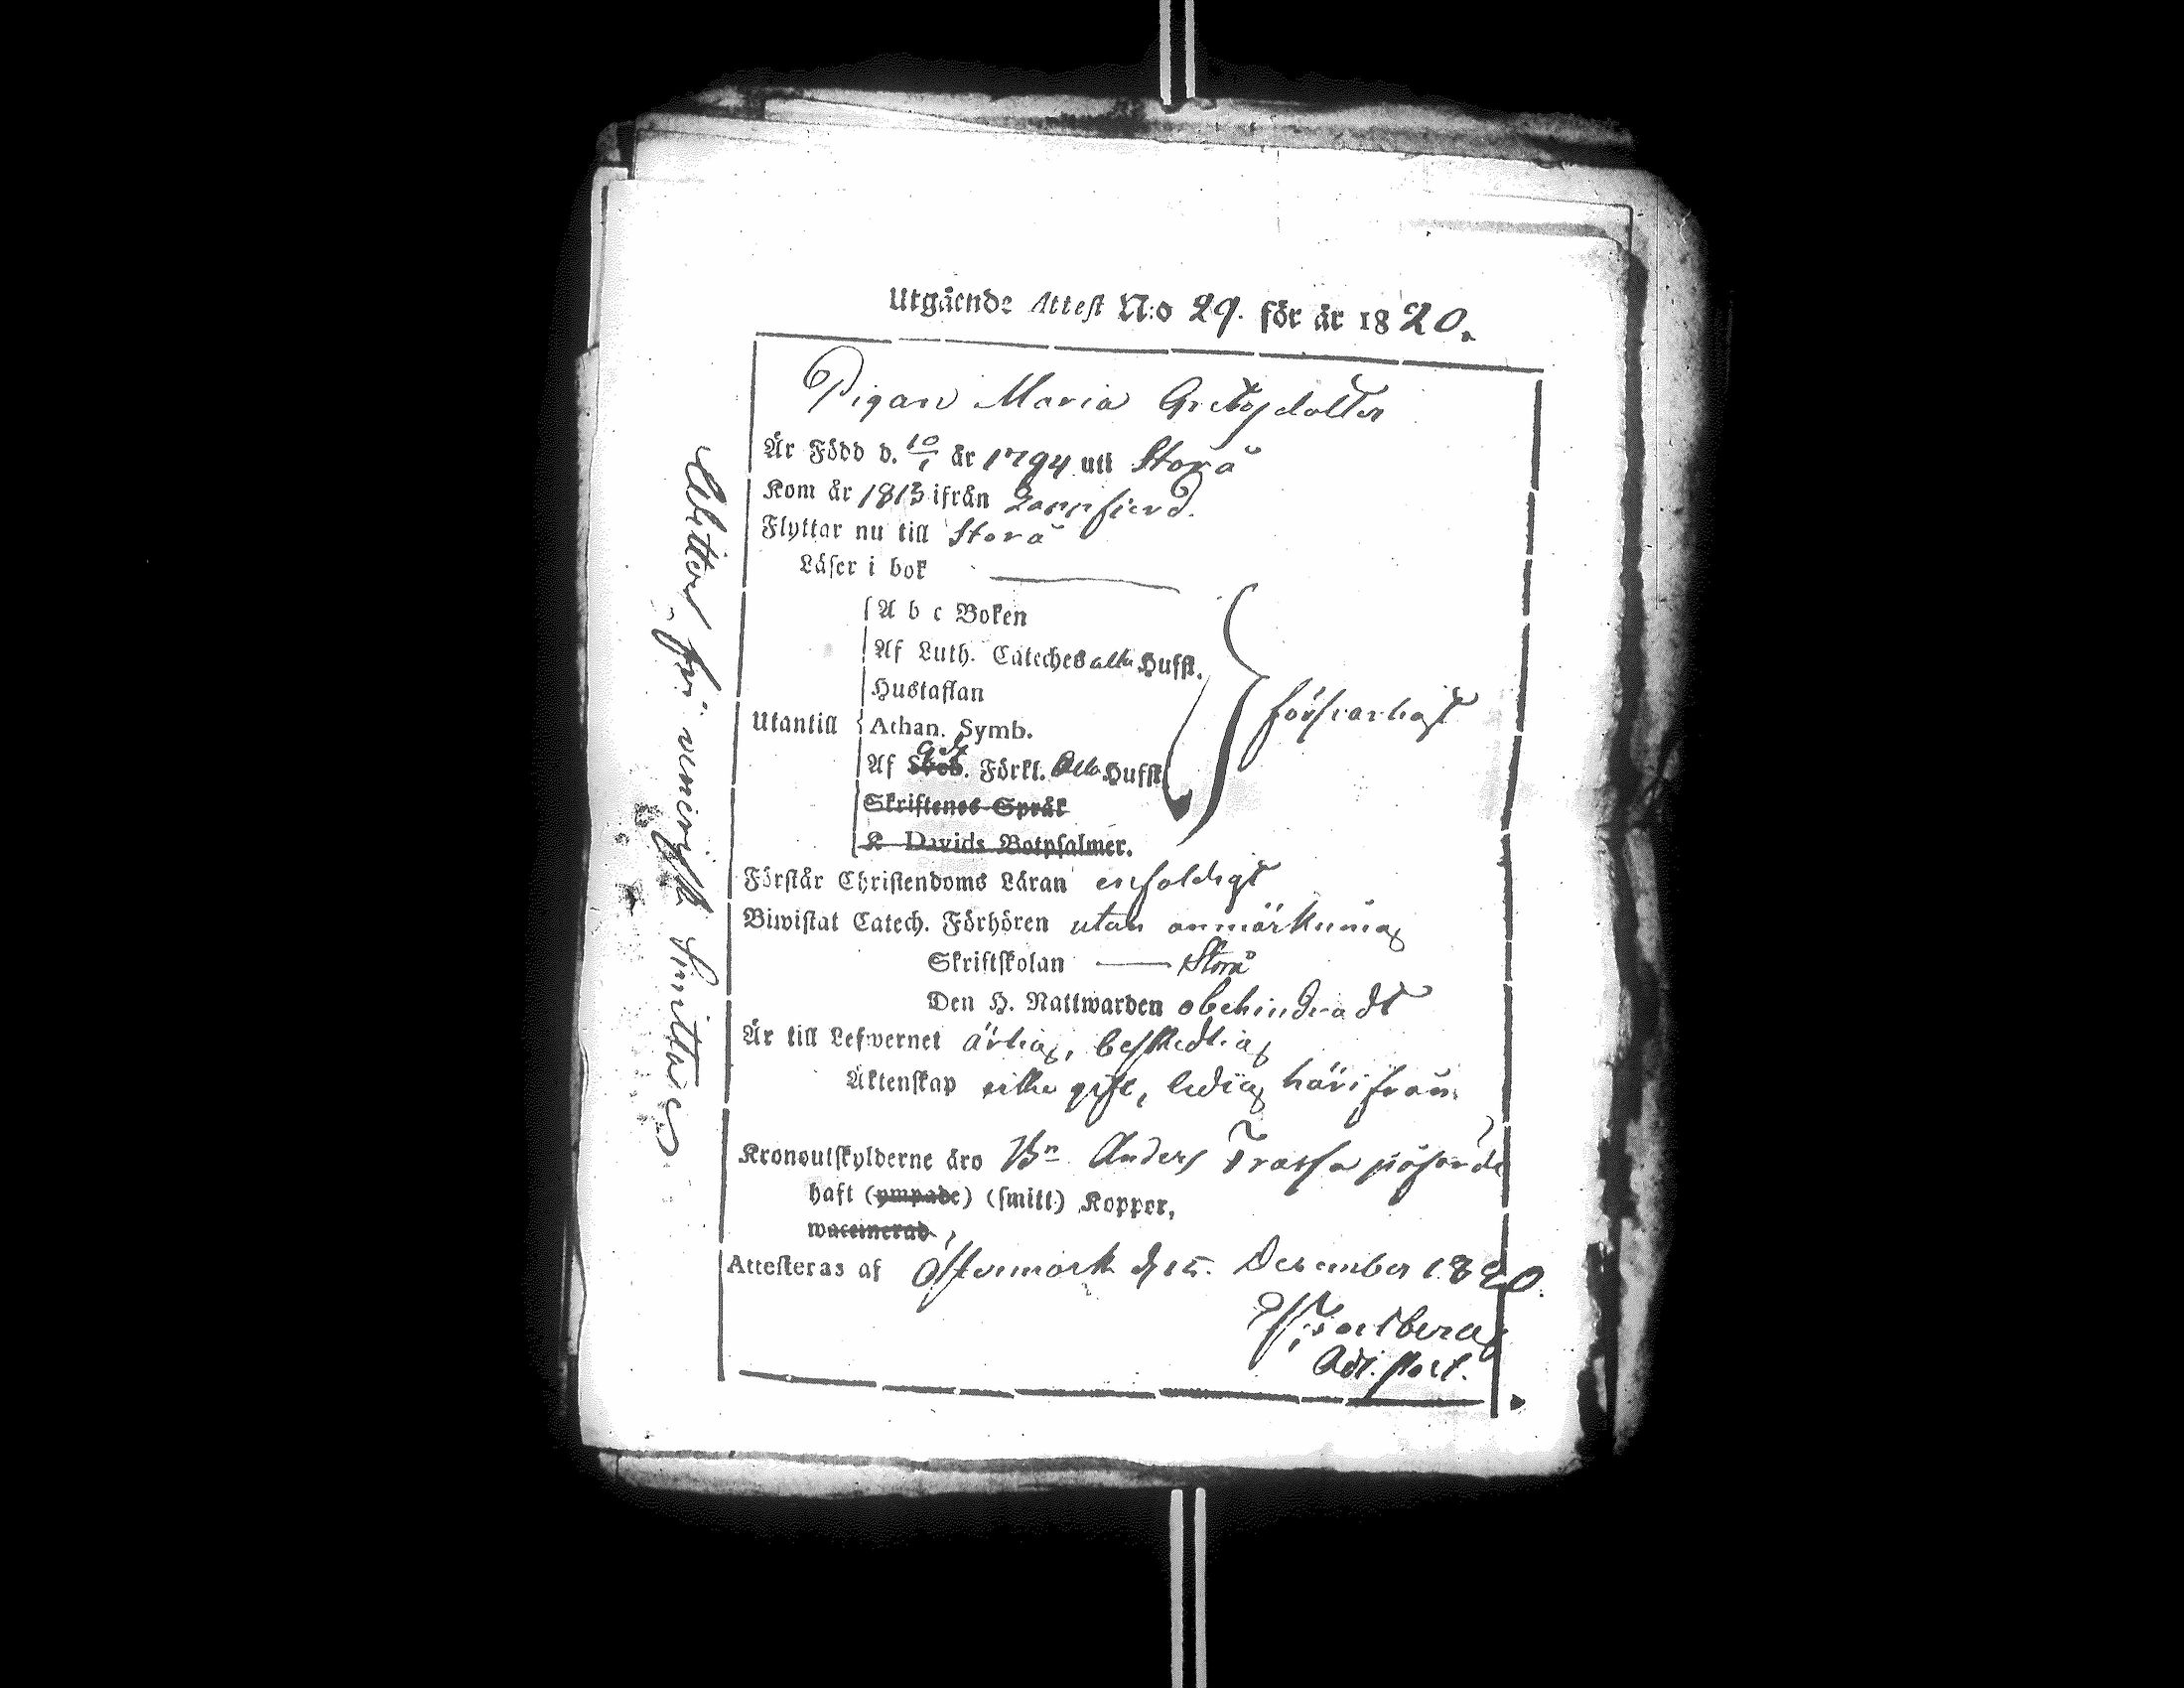 Utgående Attest N:o 29. för år 1820.
Pigan Maria Gretasdotter
Är Född d. 10/1 år 1794 uti Storå
Kom år 1813 ifrån Lappfierd.
Flyttar nu till Storå
Läser i bok ———
A b c Boken
Af Luth. Cateches alla Hufst.
Hustaflan
Utantill Athan. Symb. försvarligt
Af Förkl. alla Hufst.
Skriftenes Språk
K Davids Botpsalmer.
Förstår Christendoms Läran enfaldigt
Biwistat Catech. Förhören utan anmärkning
Skriftskolan —— Storå
Den H. Nattwarden obehindradt
Är till Lefwernet ärlig, beskedlig
Äktenskap icke gift, ledig härifrån.
Kronoutskylderne äro Bn Anders påförde
haft (ympade) (smitt.) Koppor,
waccinerad,
Attesteras af Östermark d. 15. December 1820.
Adj. past.
för venerisk Smitta